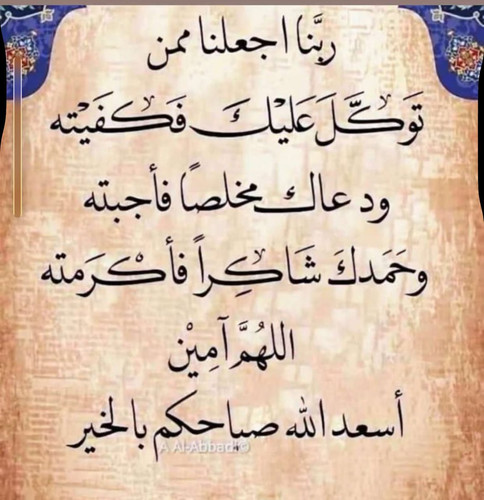 ربَّنا اجعلنا ممن
تَوَكَّلَ عَلَيْكَ فَكَفَيْته
ودعاك مخلصًا فأجبته
وحَمَدكَ شَاكِراً فأكْرَمته
اللهُمَّ آمِيْن
أسعد الله صباحكم بالخير
A Al-Abbadi©